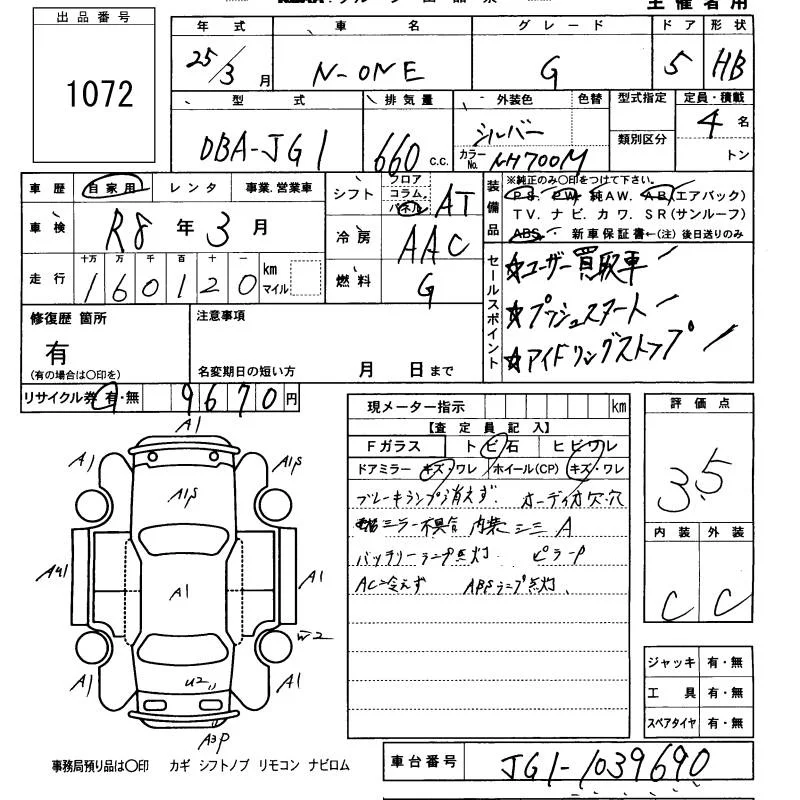 出品番号
1072
主催者用
年式 車名 グレード ドア 形状
25/3月 N-ONE G 5 HB
型式 排気量 外装色 色替 型式指定 定員・積載
DBA-JG1 660 c.c. シルバー 4名
カラーNo. NH700M 類別区分 トン
車歴 自家用 レンタ 事業.営業車
車検 R8年3月
走行 十万 万 千 百 十 一
160120 km マイル
シフト フロア コラム パネル AT
冷房 AAC
燃料 G
装備品
※純正のみ〇印をつけて下さい。
PS. PW. 純AW. AB(エアバック)
TV. ナビ. カワ. SR(サンルーフ)
ABS 新車保証書←(注)後日送りのみ
セールスポイント
☆ユーザー買取車
☆プッシュスタート
☆アイドリングストップ
修復歴 箇所
有
(有の場合は〇印を)
注意事項
名変期日の短い方 月 日まで
リサイクル券 有・無 9670円
現メーター指示 km
【査定員記入】
Fガラス トビ石 ヒビワレ
ドアミラー キズ・ワレ ホイール(CP) キズ・ワレ
ブレーキランプ消えず. オーディオ穴.穴
ミラー不具合 内装シミ A
バッテリーランプ点灯. ピラーP
AC冷えず ABSランプ点灯.
評価点
3.5
内装 外装
C C
ジャッキ 有・無
工具 有・無
スペアタイヤ 有・無
A1
A1 A1S
A1S
A41 A1 A1
W2
A1 U2 A1
A3P
事務局預り品は〇印 カギ シフトノブ リモコン ナビロム
車台番号 JG1-1039690